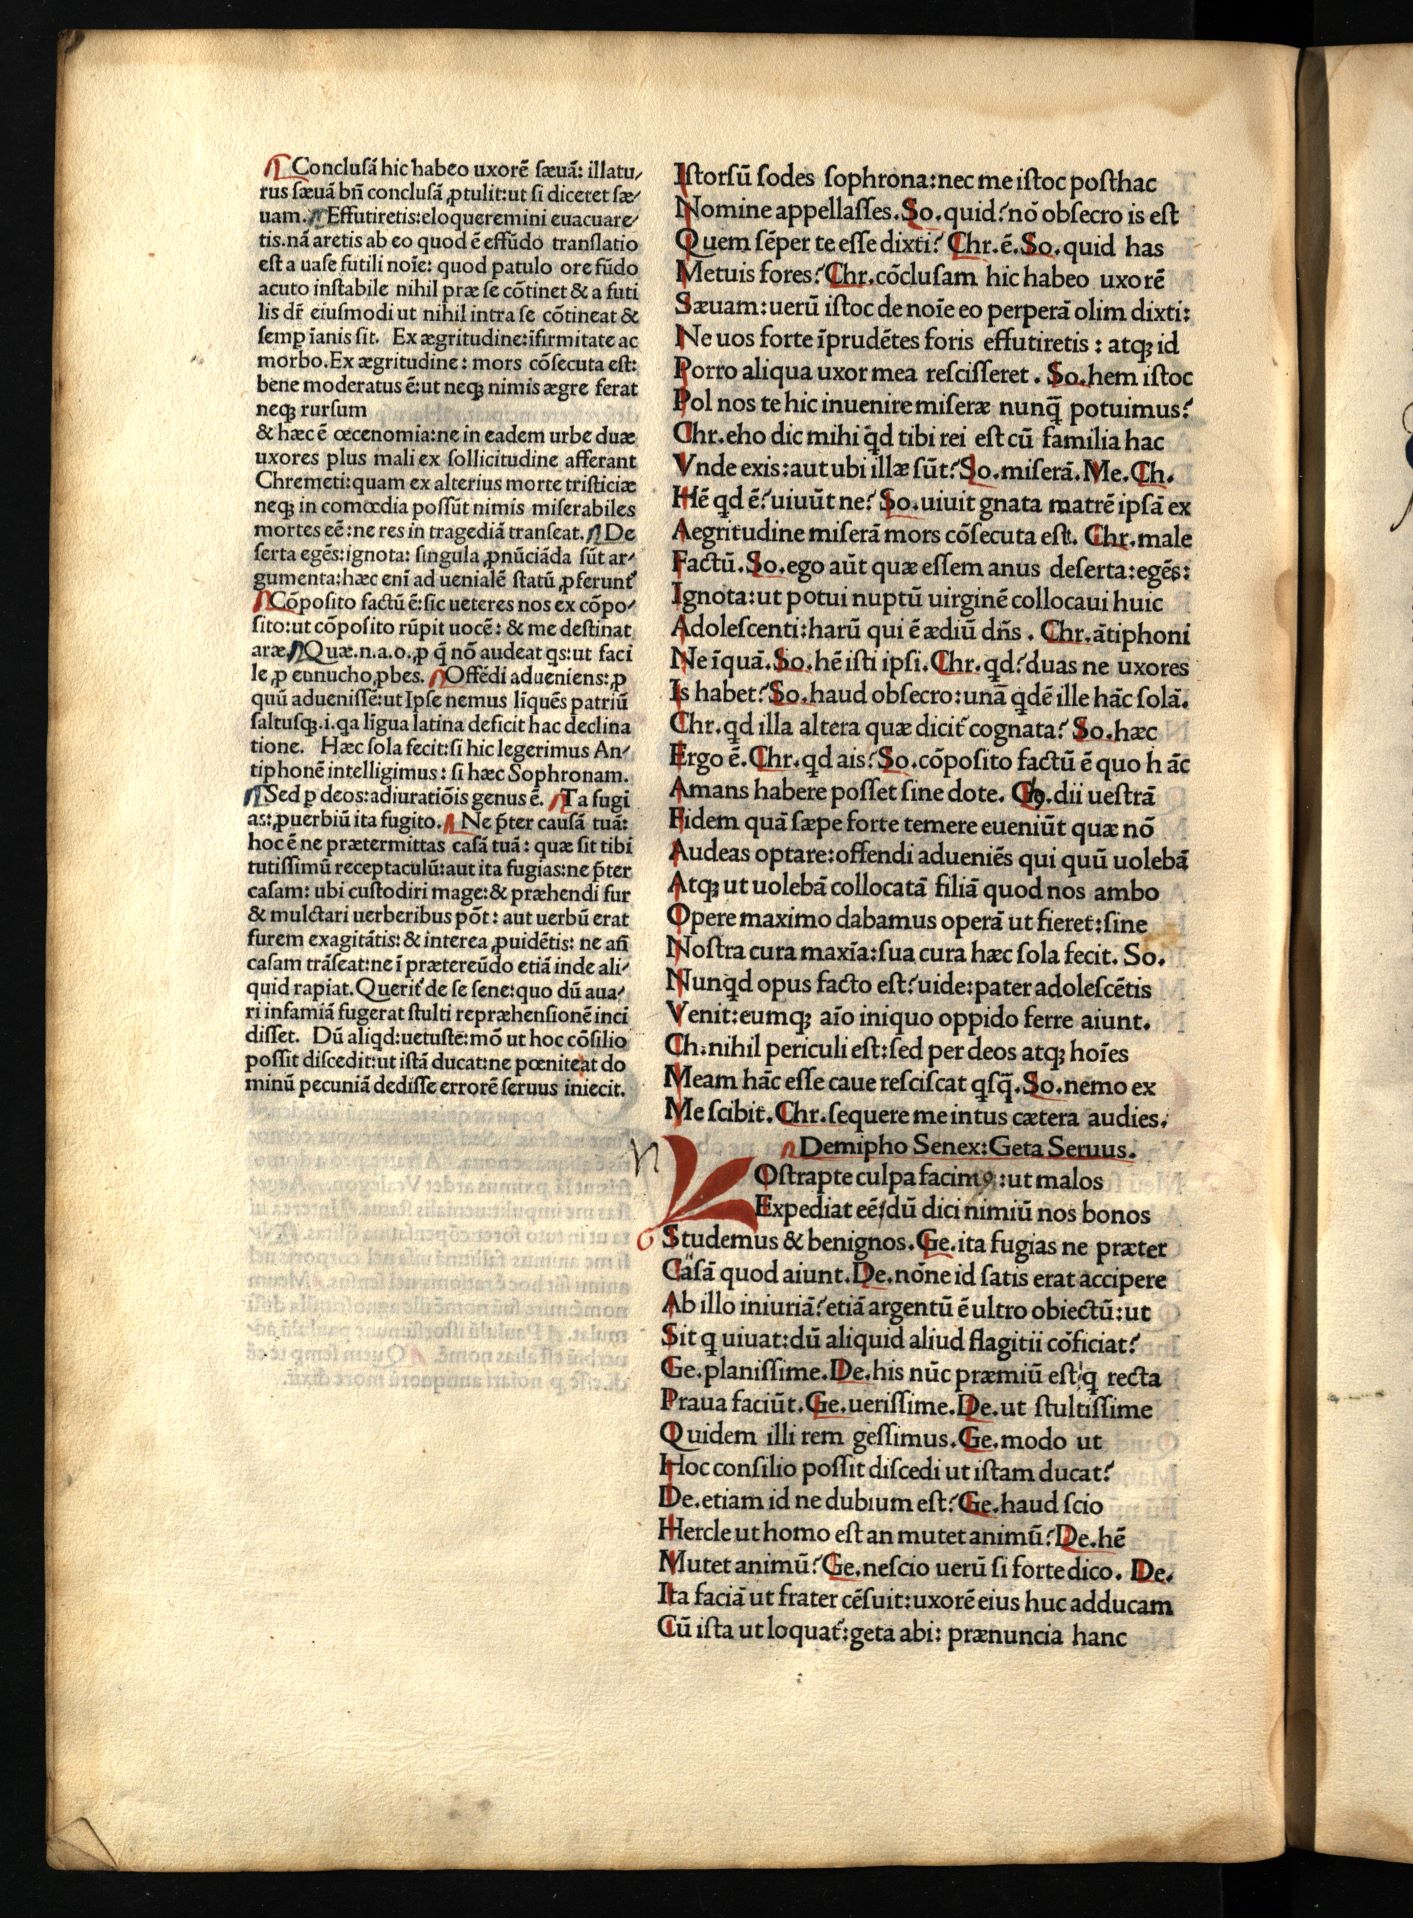 Conclusã hic habeo uxorẽ sæuã: illatu-
rus sæuã bñ conclusã ꝓtulit: ut si diceret sæ-
uam. Effutiretis: eloqueremini euacuare-
tis. nã aretis ab eo quod ẽ effũdo translatio
est a uase futili noĩe: quod patulo ore fũdo
acuto instabile nihil præ se cõtinet & a futi
lis dr̃ eiusmodi ut nihil intra se cõtineat &
semꝑ ĩanis sit. Ex ægritudine: ĩfirmitate ac
morbo. Ex ægritudine: mors cõsecuta est:
bene moderatus ẽ: ut neqꝫ nimis ægre ferat
neqꝫ rursum
& hæc ẽ œcenomia: ne in eadem urbe duæ
uxores plus mali ex sollicitudine afferant
Chremeti: quam ex alterius morte tristiciæ
neqꝫ in comœdia possũt nimis miserabiles
mortes eẽ: ne res in tragediã transeat. De
serta egẽs: ignota: singula ꝓnũciãda sũt ar-
gumenta: hæc enĩ ad uenialẽ statũ ꝓferunt᷑
Cõposito factũ ẽ: sic ueteres nos ex cõpo-
sito: ut cõposito rũpit uocẽ: & me destinat
aræ. Quæ. n. a. o. ꝓ q̃ nõ audeat qs: ut faci
le ꝓ eunucho ꝓbes. Offẽdi adueniens: ꝓ
quũ aduenissẽ: ut Ipse nemus liq̃uẽs patriũ
saltusqꝫ. i. qa lĩgua latina deficit hac declina
tione. Hæc sola fecit: si hic legerimus An-
tiphonẽ intelligimus: si hæc Sophronam.
Sed ꝑ deos: adiuratiõis genus ẽ. Ta fugi
as: ꝓuerbiũ ita fugito. Ne p̃ter causã tuã:
hoc ẽ ne prætermittas casã tuã: quæ sit tibi
tutissimũ receptaculũ: aut ita fugias: ne p̃ter
casam: ubi custodiri mage: & præhendi fur
& mulctari uerberibus põt: aut uerbũ erat
furem exagitãtis: & interea ꝓuidẽtis: ne añ
casam trãseat: ne ĩ prætereũdo etiã inde ali-
quid rapiat. Querit᷑ de se sene: quo dũ aua-
ri infamiã fugerat stulti repræhensionẽ inci
disset. Dũ aliqd: uetuste: mõ ut hoc cõsilio
possit discedit: ut istã ducat: ne pœniteat do
minũ pecuniã dedisse errorẽ seruus iniecit.
Istorsũ sodes sophrona: nec me istoc posthac
Nomine appellasses. So. quid? nõ obsecro is est
Quem sẽper te esse dixti? Chr. ẽ. So. quid has
Metuis fores? Chr. cõclusam hic habeo uxorẽ
Sæuam: uerũ istoc de noĩe eo perperã olim dixti:
Ne uos forte ĩprudẽtes foris effutiretis: atqꝫ id
Porro aliqua uxor mea rescisseret. So. hem istoc
Pol nos te hic inuenire miseræ nunq̃ potuimus?
Chr. eho dic mihi q̇d tibi rei est cũ familia hac
Vnde exis: aut ubi illæ sũt? So. miserã. Me. Ch.
Hẽ qd ẽ? uiuũt ne? So. uiuit gnata matrẽ ipsã ex
Aegritudine miserã mors cõsecuta est. Chr. male
Factũ. So. ego aũt quæ essem anus deserta: egẽs:
Ignota: ut potui nuptũ uirginẽ collocaui huic
Adolescenti: harũ qui ẽ ædiũ dñs. Chr. ãtiphoni
Ne ĩquã. So. hẽ isti ipsi. Chr. qd? duas ne uxores
Is habet? So. haud obsecro: unã qdẽ ille hãc solã.
Chr. qd illa altera quæ dicit᷑ cognata? So. hæc
Ergo ẽ. Chr. qd ais? So. cõposito factũ ẽ quo hãc
Amans habere posset sine dote. Ch. dii uestrã
Fidem quã sæpe forte temere eueniũt quæ nõ
Audeas optare: offendi adueniẽs qui quũ uolebã
Atqꝫ ut uolebã collocatã filiã quod nos ambo
Opere maximo dabamus operã ut fieret: sine
Nostra cura maxĩa: sua cura hæc sola fecit. So.
Nunqd opus facto est? uide: pater adolescẽtis
Venit: eumqꝫ aĩo iniquo oppido ferre aiunt.
Ch. nihil periculi est: sed per deos atqꝫ hoĩes
Meam hãc esse caue resciscat qsq̃. So. nemo ex
Me scibit. Chr. sequere me intus cætera audies.
Demipho Senex: Geta Seruus.
n
Ostrapte culpa facimꝰ: ut malos
Expediat eẽ/ dũ dici nimiũ nos bonos
Studemus & benignos. Ge. ita fugias ne præter
Casã quod aiunt. De. nõne id satis erat accipere
Ab illo iniuriã? etiã argentũ ẽ ultro obiectũ: ut
Sit q uiuat: dũ aliquid aliud flagitii cõficiat?
Ge. planissime. De. his nũc præmiũ est q recta
Praua faciũt. Ge. uerissime. De. ut stultissime
Quidem illi rem gessimus. Ge. modo ut
Hoc consilio possit discedi ut istam ducat?
De. etiam id ne dubium est? Ge. haud scio
Hercle ut homo est an mutet animũ? De. hẽ
Mutet animũ? Ge. nescio uerũ si forte dico. De.
Ita faciã ut frater cẽsuit: uxorẽ eius huc adducam
Cũ ista ut loquat᷑: geta abi: prænuncia hanc